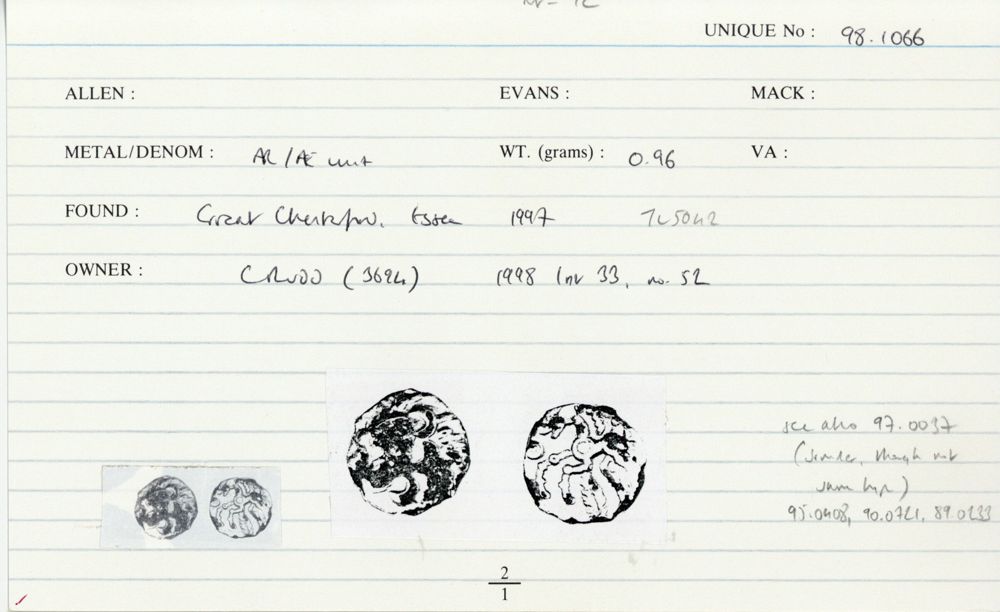 UNIQUE No : 98.1066
ALLEN : EVANS : MACK :
METAL/DENOM : AR/AE unit WT. (grams) : 0.96 VA :
FOUND : Great Chesterford, Essex 1997 TL5042
OWNER : CRUDD (3694) 1998 Inv 33, no. 52
see also 97.0037
(similar, though not
same type)
95.0408, 90.0721, 89.0233
2
1